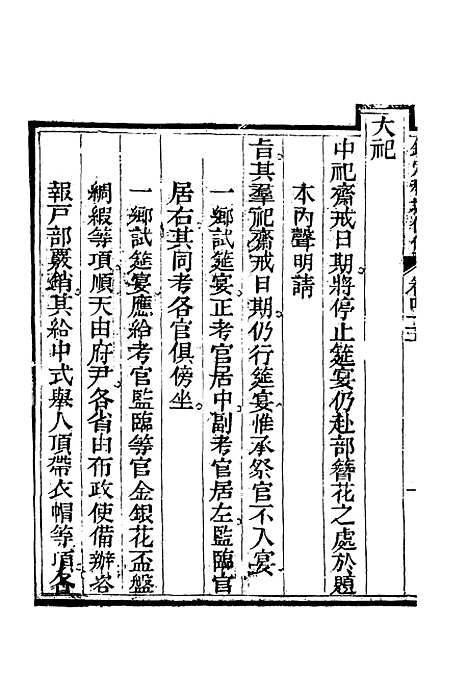 大祀
中祀齋戒日期將停止筵宴仍赴部簪花之處於題
本內聲明請
旨其羣祀齋戒日期仍行筵宴惟承祭官不入宴
一鄉試筵宴正考官居中副考官居左監臨官
居右其同考各官俱傍坐
一鄉試筵宴應給考官監臨等官金銀花盃盤
綢緞等項順天由府尹各省由布政使備辦咨
報戸部覈銷其給中式舉人頂帶衣帽等項各